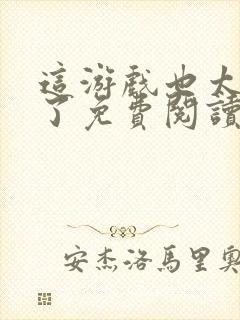 這游戲也太
了免費閱讀
安杰洛馬里奧